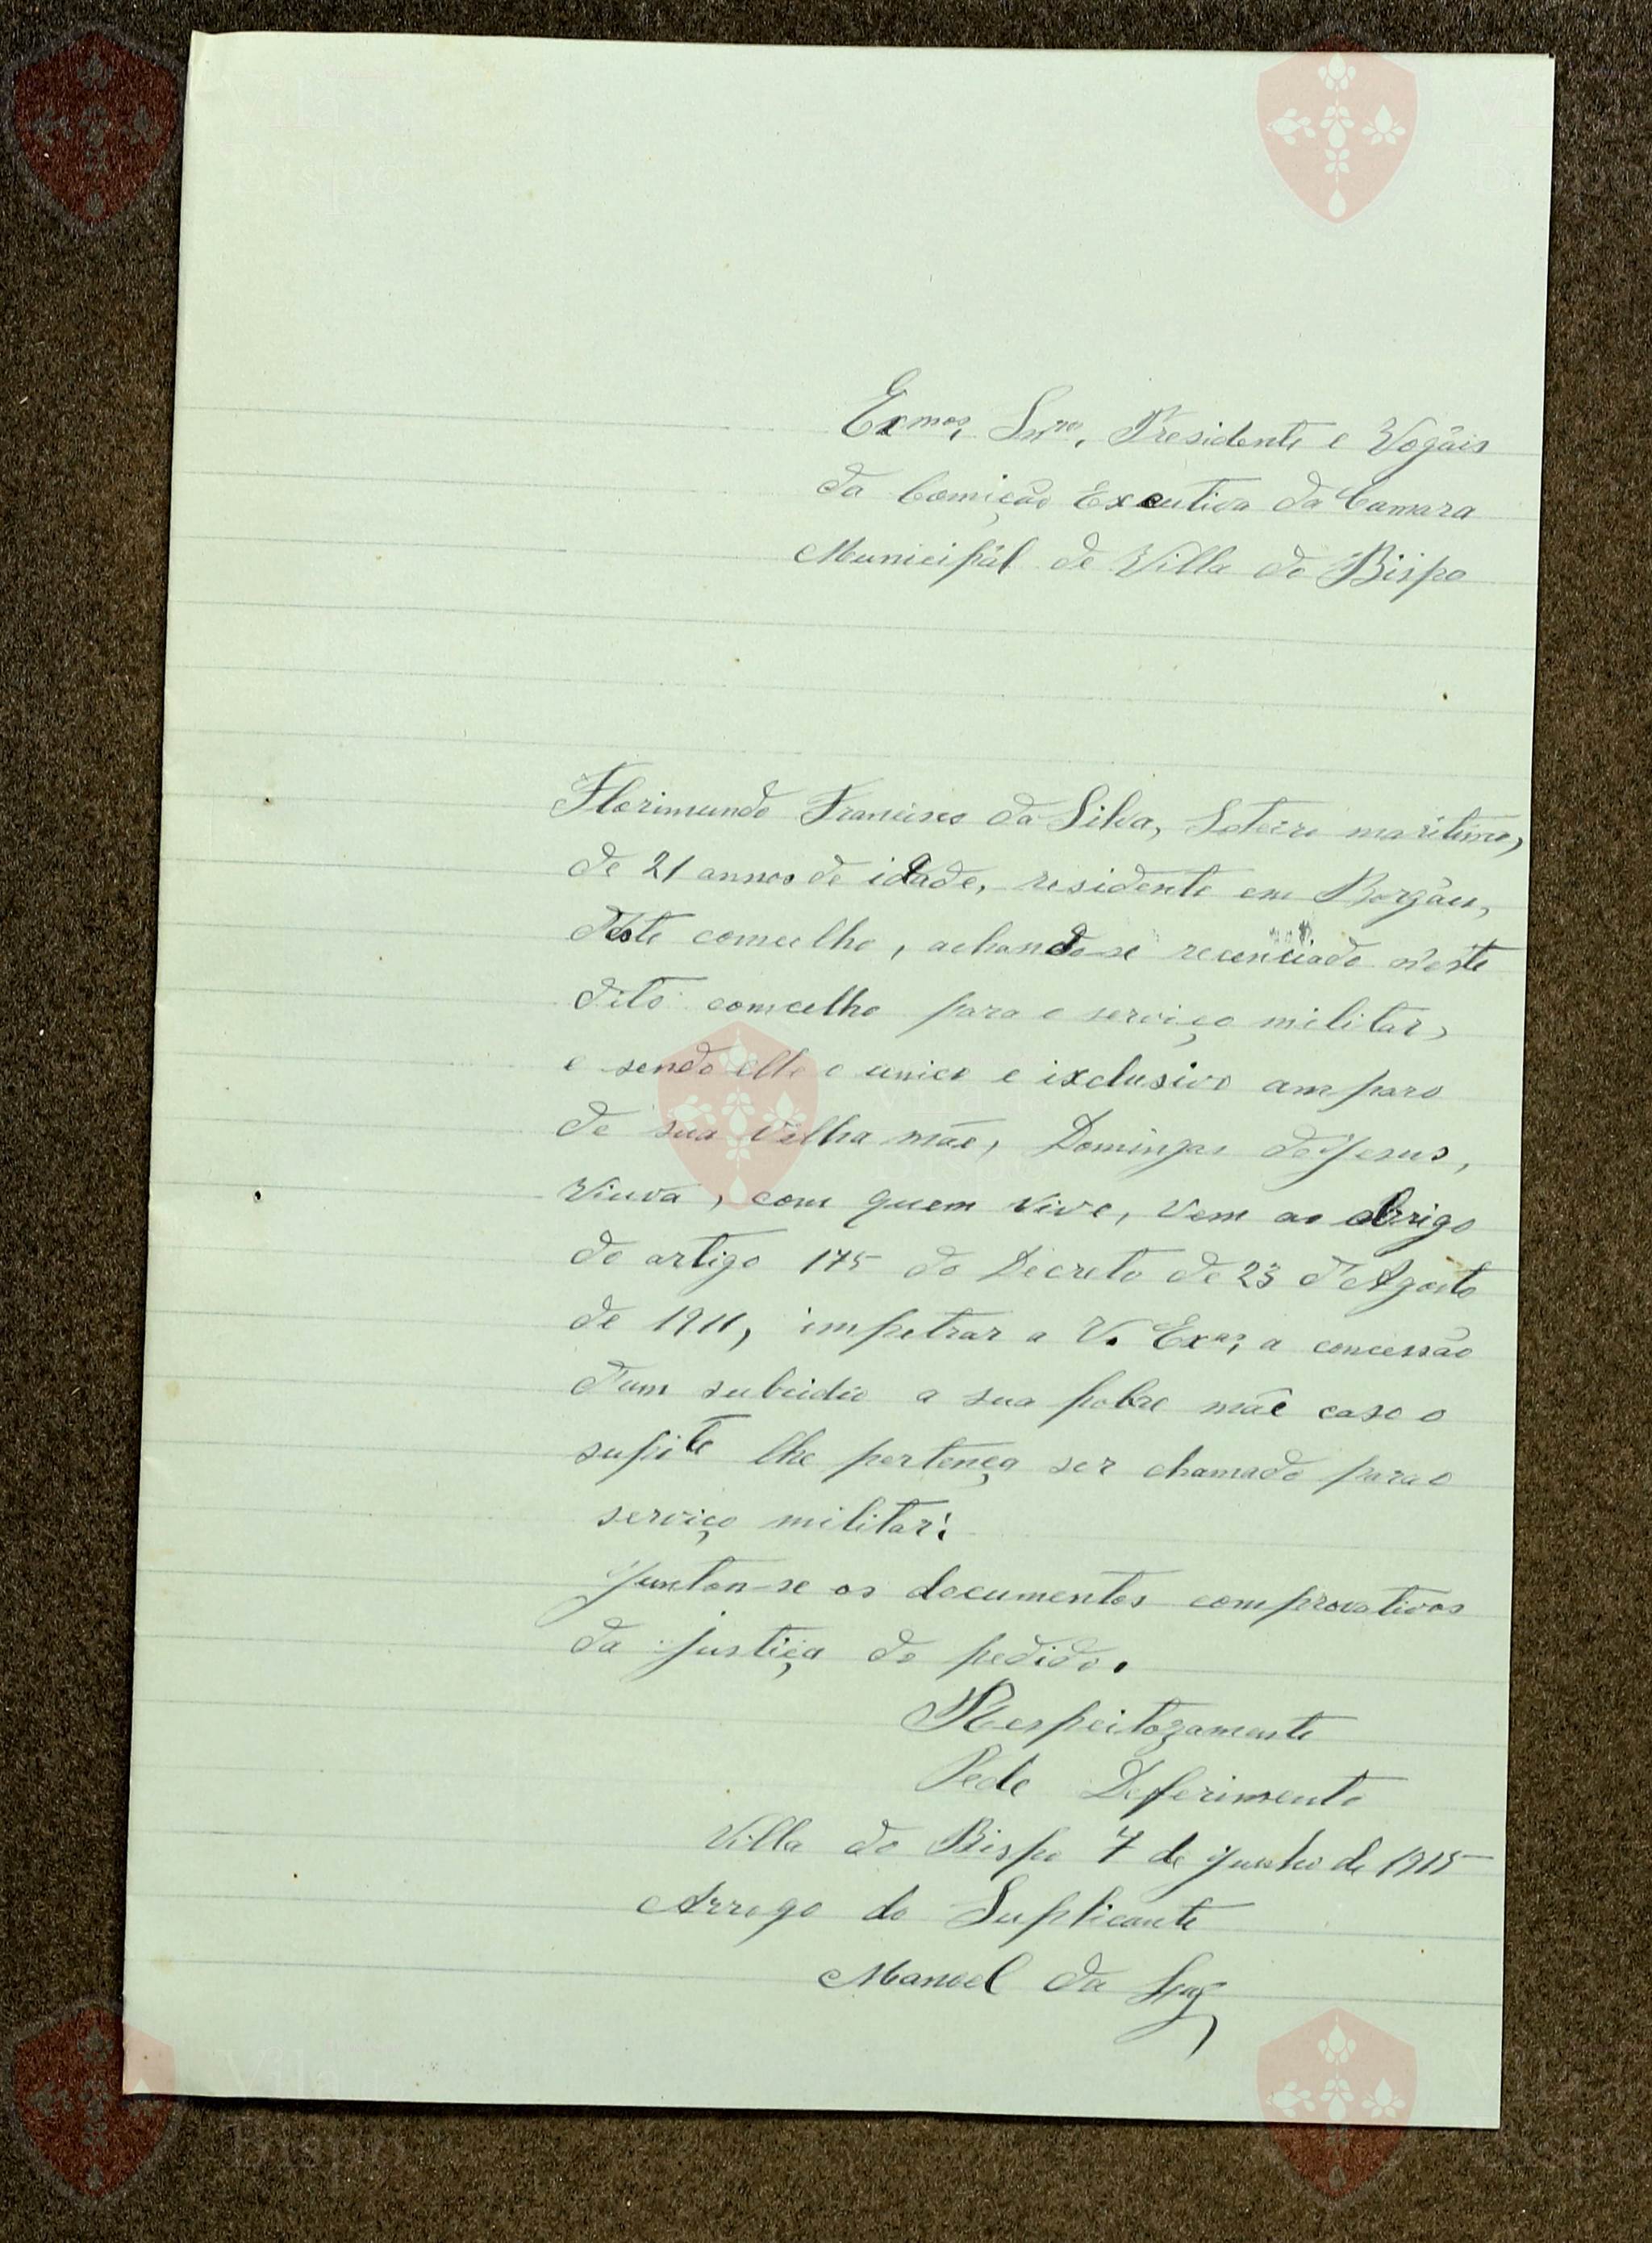 Exmos, Snrs, Presidente e Vogáis
da Comição Executiva da Camara
Municipál de Villa do Bispo
Florimundo Francisco da Silva, Soteiro maritimo,
de 21 annos de idade, residente em Borgáu,
d'este comcelho, achando-se recenciado n'este
dito comcelho para o serviço militar,
e sendo elle o unico e ixclusivo amparo
de sua velha mãe, Domingas de Jesus,
Viuva, com quem vive, vem ao abrigo
do artigo 175 do Decreto de 23 d'Agosto
de 1911, impetrar a V. Exas, a concessão
d'um subcidio a sua pobre mãe caso o
supite lhe pertença ser chamado para o
serviço militar.
Juntan-se os documentos comprovativos
da justiça do pedido.
Respeitozamente
Pede Deferimento
Villa do Bispo 7 de Junho de 1915
Arrogo do Suplicante
Manoel da Luz